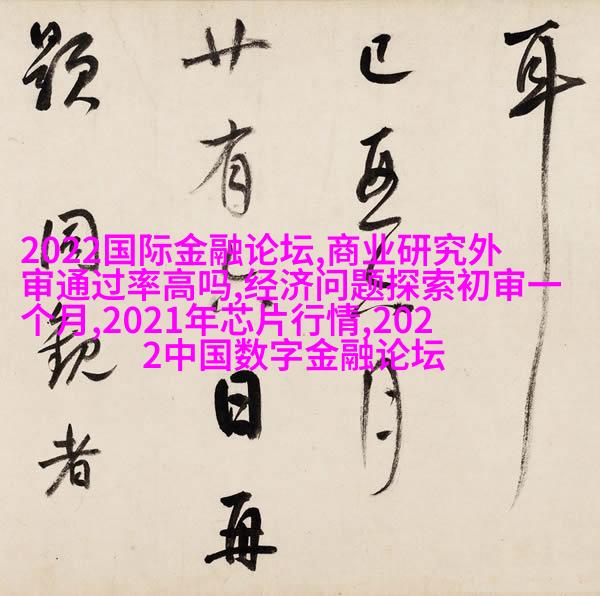 2022国际金融论坛,商业研究外
审通过率高吗,经济问题探索初审一
个月,2021年芯片行情,202
2中国数字金融论坛
耳
己五月
廿有日再
題同觀者